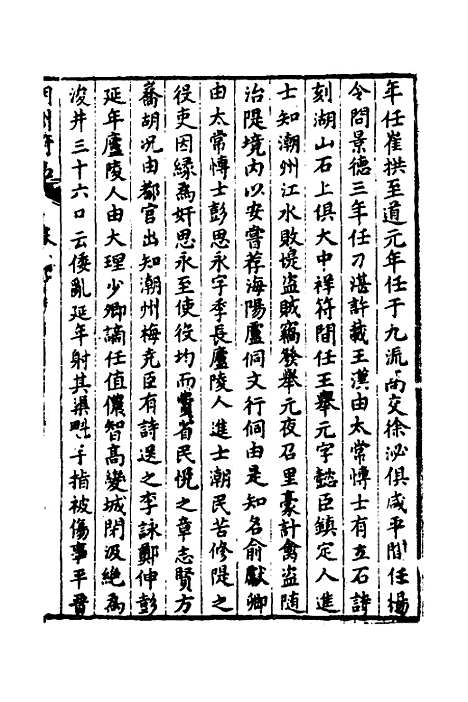 年任崔拱至道元年任于九流尚交徐泌俱咸平間任楊
令問景德三年任刁湛許載王漢由太常博士有立石詩
刻湖山石上俱大中祥符間任王舉元字懿臣鎮定人進
士知潮州江水敗堤盜賊竊發舉元夜召里豪計禽盜隨
治隄境內以安嘗荐海陽盧侗文行侗由是知名俞獻卿
由太常博士彭思永字季長廬陵人進士潮民苦修隄之
役吏因緣為奸思永至使役均而費省民悅之章志賢方
蓁胡况由都官出知潮州梅堯臣有詩送之李詠鄭伸彭
延年廬陵人由大理少卿謫任值儂智高變城閉汲絕為
浚井三十六口云倭亂延年射其渠魁手指被傷事平晉